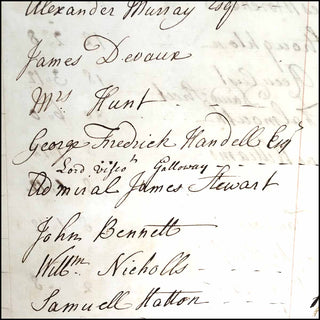 Alexander Murray Esqr
James Devaux
Mrs Hunt
George Fredrick Handell Esqr
Lord Viscot Galloway
Admiral James Stewart
John Bennett
Willm Nicholls
Samuell Hatton